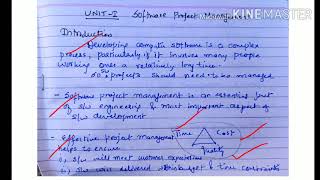 KINEMASTER
UNIT-I Software Project Manag
Introduction
Developing computer software is a complex
process, particularly if it involves many people
working over a relatively long time.
projects should need to be managed
- Software project management is an essential part
of s/w engineering & most important aspect of
s/w development
- Effective project management
helps to ensure
Time
Cost
Quality
i) s/w will meet customer expectations
ii) s/w will delivered budget & time constraints